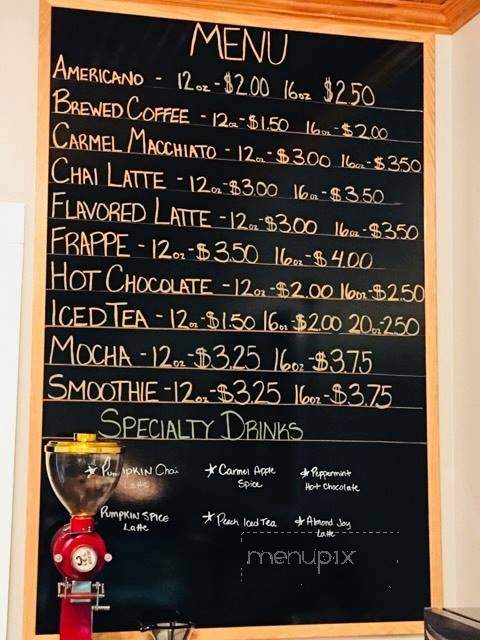 MENU
AMERICANO - 12oz - $2.00 16oz $2.50
BREWED COFFEE - 12oz - $1.50 16oz - $2.00
CARMEL MACCHIATO - 12oz - $3.00 16oz - $3.50
CHAI LATTE - 12oz - $3.00 16oz - $3.50
FLAVORED LATTE - 12oz - $3.00 16oz - $3.50
FRAPPE - 12oz - $3.50 16oz - $4.00
HOT CHOCOLATE - 12oz - $2.00 16oz - $2.50
ICED TEA - 12oz - $1.50 16oz $2.00 20oz - 2.50
MOCHA - 12oz - $3.25 16oz $3.75
SMOOTHIE - 12oz - $3.25 16oz - $3.75
SPECIALTY DRINKS
PUMPKIN Chai
Latte
Carmel Apple
Spice
Peppermint
Hot Chocolate
PUMPKIN SPICE
Latte
Peach Iced Tea
Almond Joy
Latte
menupix